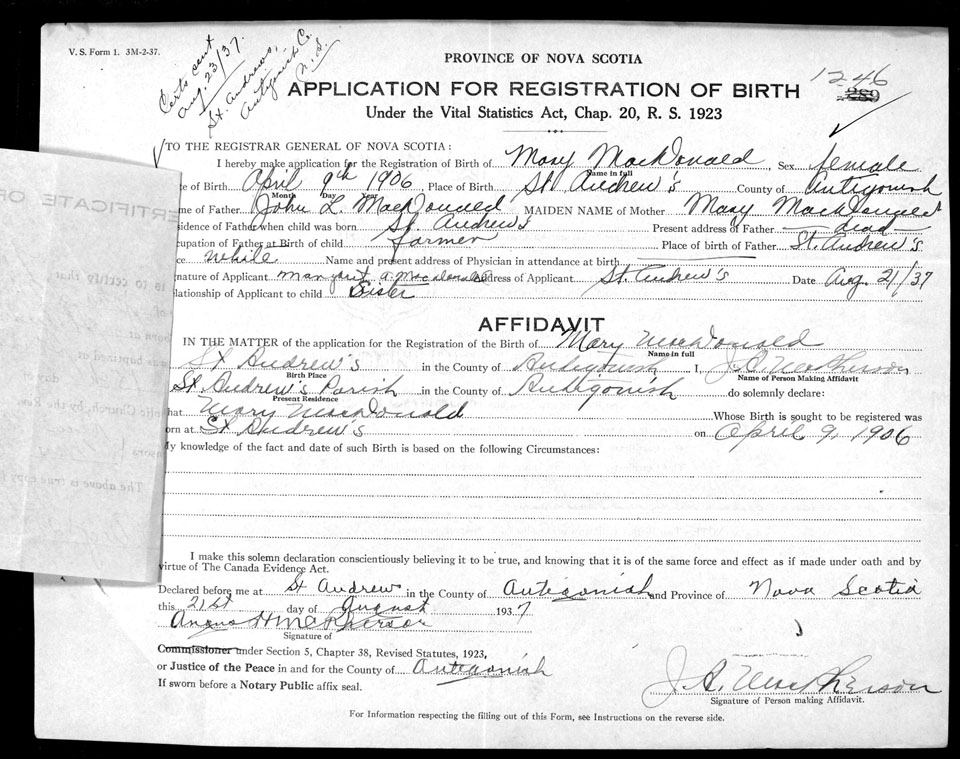 V. S. Form 1. 3M-2-37.
Certs sent
Aug. 23/37.
St. Andrews,
Antigonish Co.
N. S.
PROVINCE OF NOVA SCOTIA
1246
289
APPLICATION FOR REGISTRATION OF BIRTH
Under the Vital Statistics Act, Chap. 20, R. S. 1923
TO THE REGISTRAR GENERAL OF NOVA SCOTIA:
I hereby make application for the Registration of Birth of Mary MacDonald, Sex female
Name in full
e of Birth April 9th 1906, Place of Birth St. Andrew's County of Antigonish
Month Day Year
me of Father John L. MacDonald MAIDEN NAME of Mother Mary MacDonald
sidence of Father when child was born St. Andrew's Present address of Father dead
cupation of Father at Birth of child farmer Place of birth of Father St. Andrew's
ce White Name and present address of Physician in attendance at birth
nature of Applicant Margaret A. MacDonald Address of Applicant St. Andrew's Date Aug. 21/37
elationship of Applicant to child Sister
AFFIDAVIT
IN THE MATTER of the application for the Registration of the Birth of Mary MacDonald
Name in full
St Andrew's in the County of Antigonish I, J. A. MacPherson
Birth Place Name of Person Making Affidavit
St. Andrew's Parish in the County of Antigonish do solemnly declare:
Present Residence
hat Mary MacDonald Whose Birth is sought to be registered was
orn at St Andrew's on April 9, 1906
My knowledge of the fact and date of such Birth is based on the following Circumstances:
I make this solemn declaration conscientiously believing it to be true, and knowing that it is of the same force and effect as if made under oath and by
virtue of The Canada Evidence Act.
Declared before me at St Andrews in the County of Antigonish and Province of Nova Scotia
this 21st day of August 1937
Angus H McPherson
Signature of
Commissioner under Section 5, Chapter 38, Revised Statutes, 1923,
or Justice of the Peace in and for the County of Antigonish
If sworn before a Notary Public affix seal.
J. A. MacPherson
Signature of Person making Affidavit.
For Information respecting the filling out of this Form, see Instructions on the reverse side.